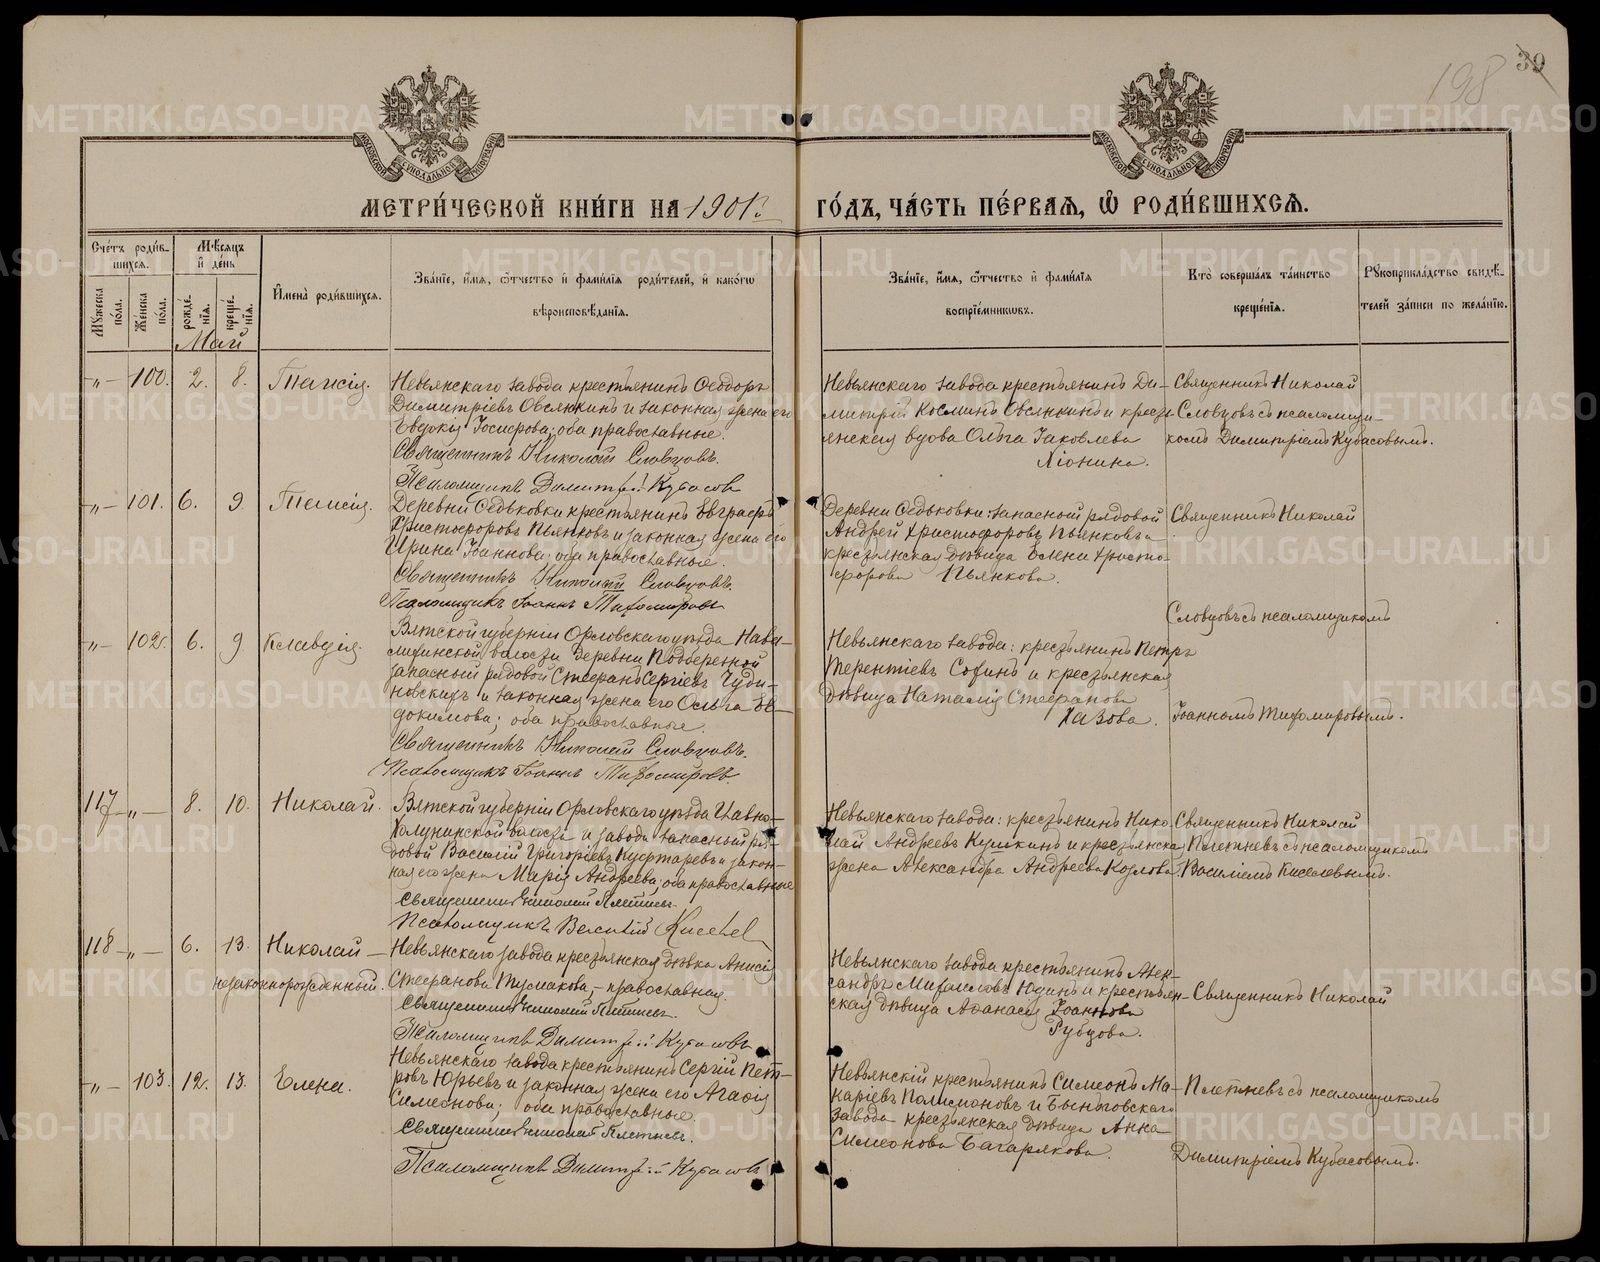 198
30
МОСКОВСКОЙ СѴНОДАЛЬНОЙ ТИПОГРАФІИ
МОСКОВСКОЙ СѴНОДАЛЬНОЙ ТИПОГРАФІИ
МЕТРИ́ЧЕСКОЙ КНИ́ГИ НА 1901 г.
ГО́ДЪ, ЧА́СТЬ ПЕ́РВАЯ, Ѽ РОДИ́ВШИХСЯ.
Сче́тъ роди́вшихся.
Му́жеска по́ла.
Же́нска по́ла.
Мѣ́сяцъ и де́нь
рожде́нія.
креще́нія.
Имена̀ роди́вшихся.
Зва́ніе, и́мя, ѻ́тчество и фами́лія роди́телей, и како́гѡ
вѣроисповѣ́данія.
Зва́ніе, и́мя, ѻ́тчество и фами́лія
воспріе́мникѡвъ.
Кто̀ соверша́лъ та́инство
креще́нія.
Рукоприкла́дство свидѣ́-
телей за́писи по жела́нію.
Май
-„- 100. 2. 8. Таисія.
Невьянскаго завода крестьянинъ Ѳеодоръ
Димитріевъ Овсянкинъ и законная жена его
Евдокія Іосифова; оба православные.
Священникъ Николай Словцовъ.
Псаломщикъ Димитрій Кубасовъ
Невьянскаго завода крестьянинъ Ди-
митрій Косминъ Овсянкинъ и кресть-
янская вдова Ольга Іаковлева
Ліонина.
Священникъ Николай
Словцовъ съ псаломщи-
комъ Димитріемъ Кубасовымъ.
-„- 101. 6. 9. Таисія.
Деревни Ѳедьковки крестьянинъ Евграфъ
Христофоровъ Пьянковъ и законная жена его
Ирина Іоаннова; оба православные.
Священникъ Николай Словцовъ.
Псаломщикъ Іоаннъ Тихомировъ
Деревни Ѳедьковки: запасный рядовой
Андрей Христофоровъ Пьянковъ и
крестьянская дѣвица Елена Христо-
форова Пьянкова.
Священникъ Николай
Словцовъ съ псаломщикомъ
-„- 102. 6. 9 Клавдія.
Вятской губерніи Орловскаго уѣзда
волости деревни
запасный рядовой Стефанъ Сергіевъ Чуди-
новскихъ и законная жена его Ольга Ев-
докимова; оба православные.
Священникъ Николай Словцовъ.
Псаломщикъ Іоаннъ Тихомировъ.
Невьянскаго завода: крестьянинъ Петръ
Терентіевъ Софинъ и крестьянская
дѣвица Наталія Стефанова
Хазова.
Іоанномъ Тихомировымъ.
117 -„- 8. 10. Николай.
Вятской губерніи Орловскаго уѣзда
Холуницкой волости и завода запасный ря-
довой Василій Григоріевъ и закон-
ная его жена Марія Андреева; оба православные
Священникъ Николай Плетневъ.
Псаломщикъ Василій Киселев
Невьянскаго завода: крестьянинъ Нико-
лай Андреевъ Кушкинъ и крестьянская
жена Александра Андреева Козлова.
Священникъ Николай
Плетневъ съ псаломщикомъ
Василіемъ Киселевымъ.
118 -„- 6. 13. Николай -
незаконнорожденный.
Невьянскаго завода крестьянская дѣвка Анисія
Стефанова Тусмакова, - православная.
Священникъ Николай Плетневъ.
Псаломщикъ Димитрій Кубасовъ
Невьянскаго завода крестьянинъ Алек-
сандръ Михаиловъ Юдинъ и крестьян-
ская дѣвица Аѳанасія Іоаннова
Рубцова.
Священникъ Николай
-„- 103. 12. 13. Елена.
Невьянскаго завода крестьянинъ Сергій Пет-
ровъ Юрьевъ и законная жена его Агаѳія
Симеонова; оба православные.
Священникъ Николай Плетневъ.
Псаломщикъ Димитрій Кубасовъ
Невьянскій крестьянинъ Симеонъ Ма-
каріевъ Полисмоновъ и Быньговскаго
завода крестьянская дѣвица Анна
Симеонова Багарякова.
Плетневъ съ псаломщикомъ
Димитріемъ Кубасовымъ.
METRIKI.GASO-URAL.RU